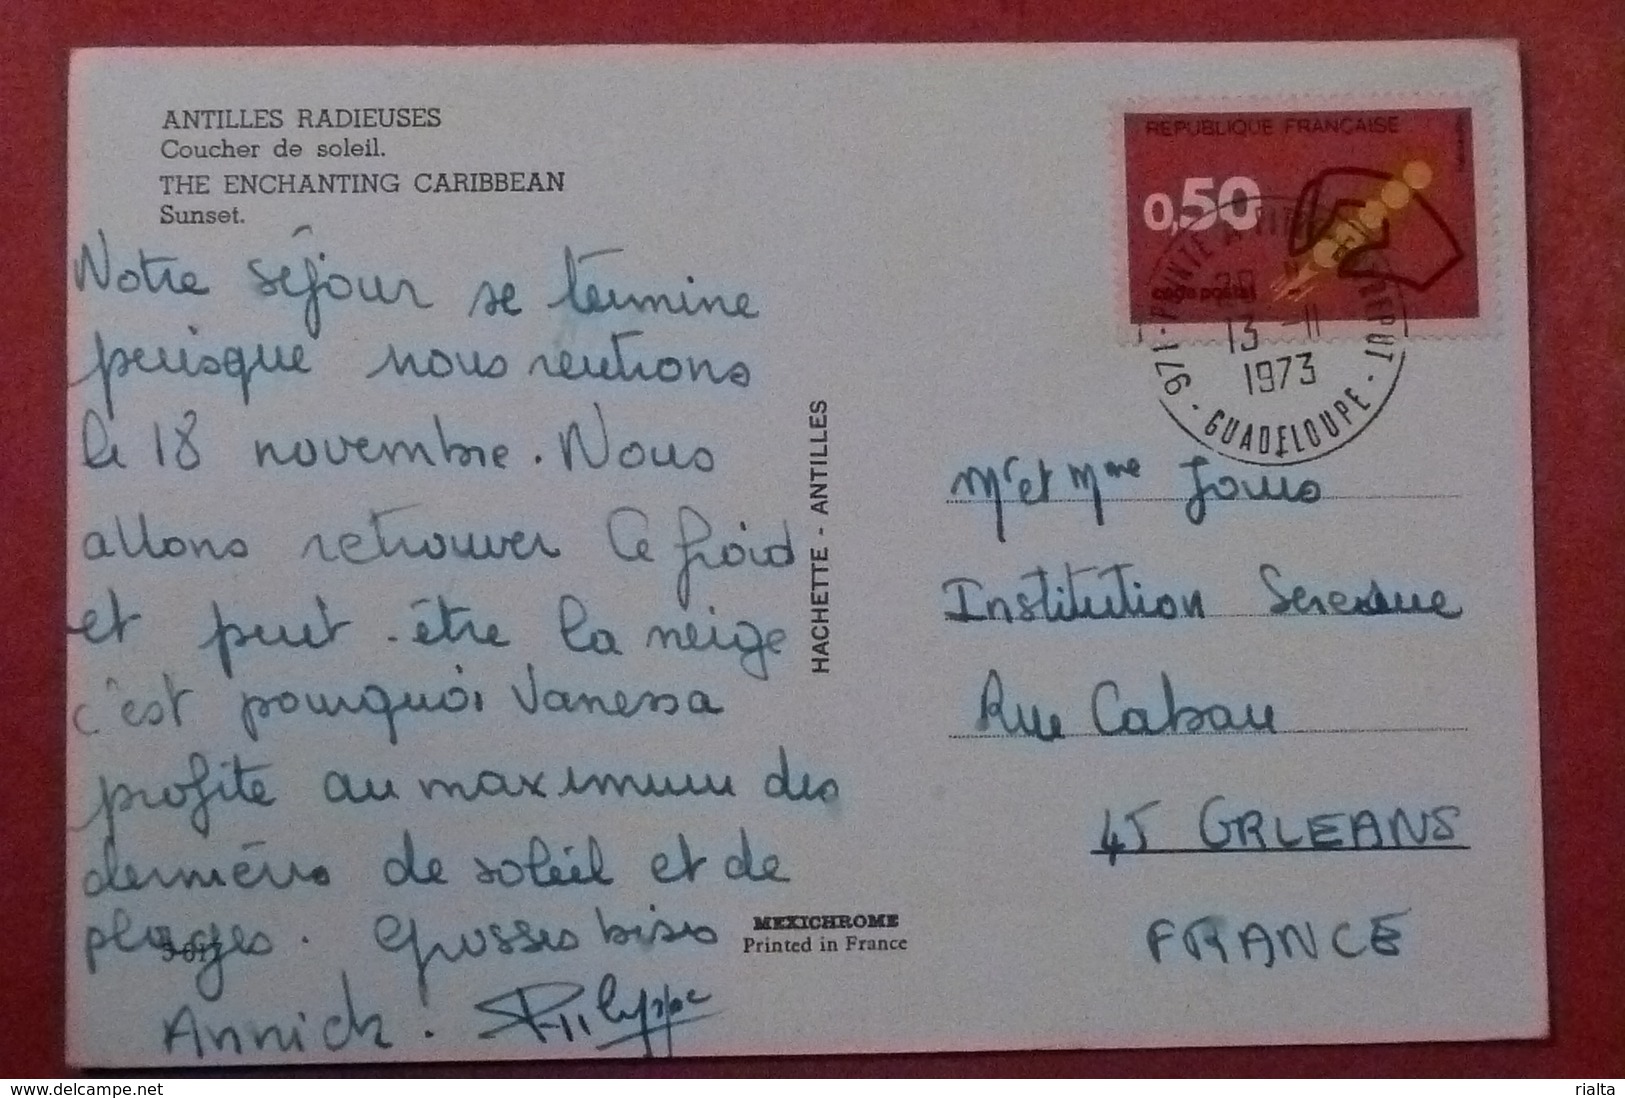 ANTILLES RADIEUSES
Coucher de soleil.
THE ENCHANTING CARIBBEAN
Sunset.
Notre séjour se termine
puisque nous rentrons
le 18 novembre. Nous
allons retrouver le froid
et peut-être la neige
c'est pourquoi Vanessa
profite au maximum des
derniers de soleil et de
plages. Grosses bises
Annick. Philippe
HACHETTE - ANTILLES
MEXICHROME
Printed in France
REPUBLIQUE FRANÇAISE
0,50
code postal
971 · POINTE A PITRE
13 -11
1973
GUADELOUPE
Mr et Mme
Institution
Rue Cabau
45 ORLEANS
FRANCE
www.delcampe.net
rialta